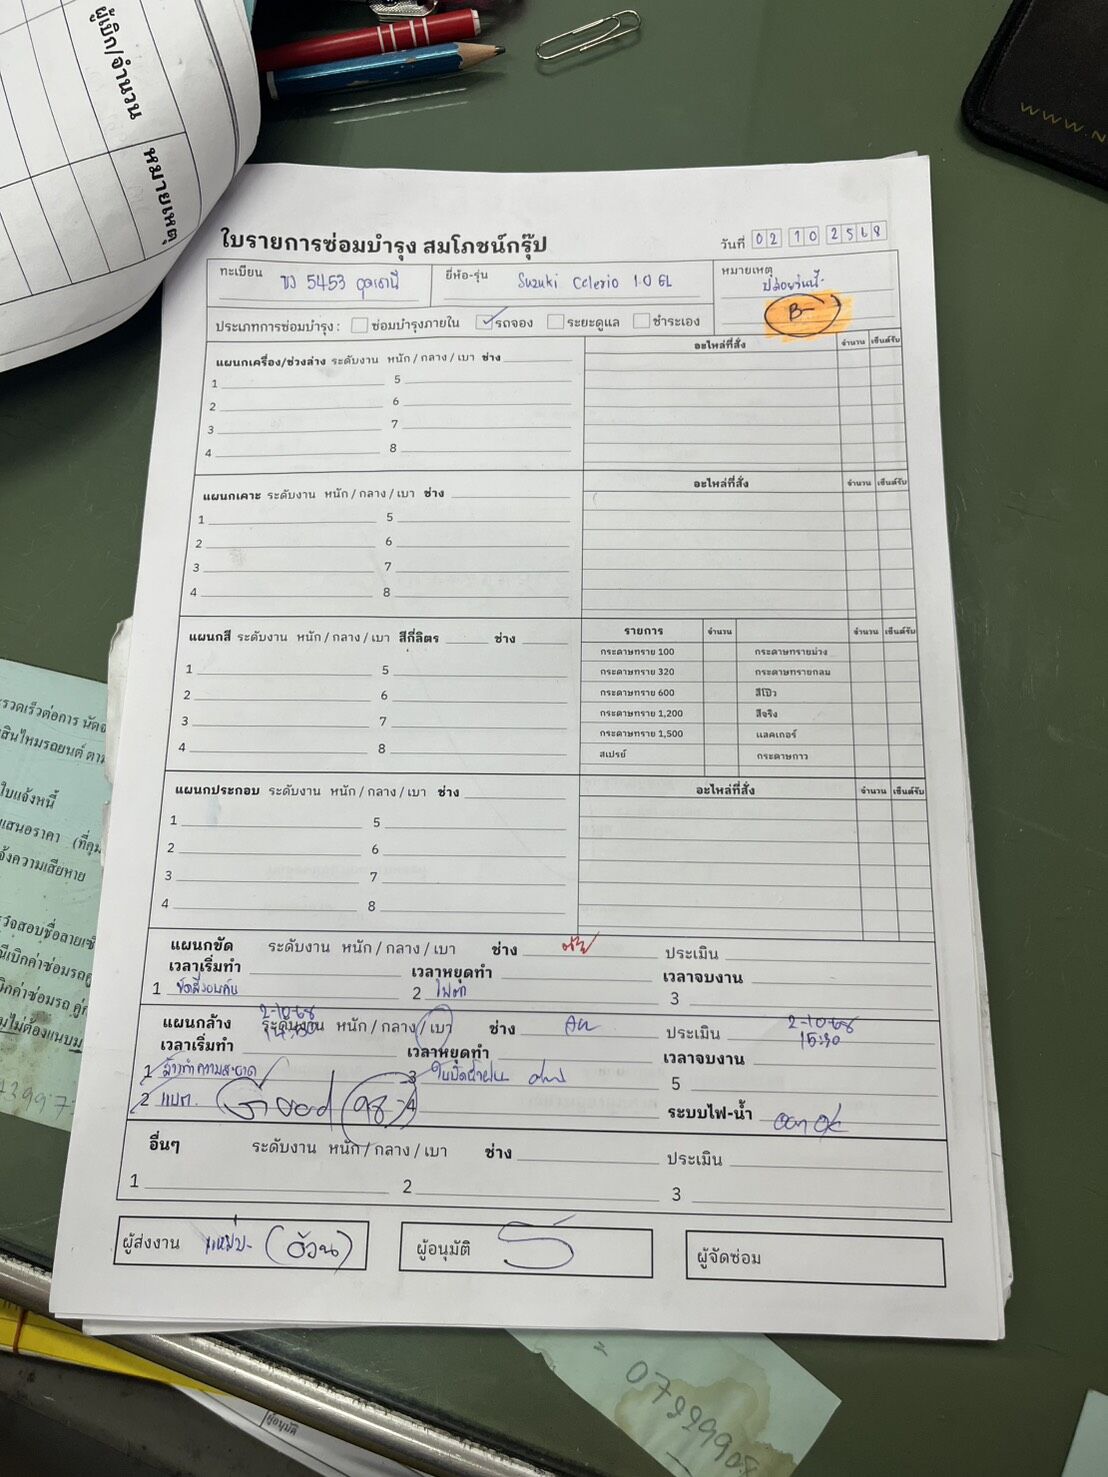 ผู้เบิก/จำนวน
หมายเหตุ
WWW.N
ใบรายการซ่อมบำรุง สมโภชน์กรุ๊ป
วันที่ 02 10 2568
ทะเบียน 5453 อุดรธานี
ยี่ห้อ-รุ่น Suzuki Celerio 1.0 GL
หมายเหตุ
B-
ประเภทการซ่อมบำรุง : ซ่อมบำรุงภายใน รถจอง ระยะดูแล ชำระเอง
แผนกเครื่อง/ช่วงล่าง ระดับงาน หนัก / กลาง / เบา ช่าง
อะไหล่ที่สั่ง จำนวน เซ็นต์รับ
1 5
2 6
3 7
4 8
แผนกเคาะ ระดับงาน หนัก / กลาง / เบา ช่าง
อะไหล่ที่สั่ง จำนวน เซ็นต์รับ
1 5
2 6
3 7
4 8
แผนกสี ระดับงาน หนัก / กลาง / เบา สีกี่ลิตร ช่าง
รายการ จำนวน จำนวน เซ็นต์รับ
1 5
2 6
3 7
4 8
กระดาษทราย 100 กระดาษทรายม่วง
กระดาษทราย 320 กระดาษทรายกลม
กระดาษทราย 600 สีโป๊ว
กระดาษทราย 1,200 สีจริง
กระดาษทราย 1,500 แลคเกอร์
สเปรย์ กระดาษกาว
แผนกประกอบ ระดับงาน หนัก / กลาง / เบา ช่าง
อะไหล่ที่สั่ง จำนวน เซ็นต์รับ
1 5
2 6
3 7
4 8
แผนกขัด ระดับงาน หนัก / กลาง / เบา ช่าง ประเมิน
เวลาเริ่มทำ เวลาหยุดทำ เวลาจบงาน
1 ขัดสีรอบคัน 2 ไฟตา 3
แผนกล้าง ระดับงาน หนัก / กลาง / เบา ช่าง ประเมิน
2-10-68 2-10-68
15:30
เวลาเริ่มทำ เวลาหยุดทำ เวลาจบงาน
1 ล้างทำความสะอาด 3 ใบปัดน้ำฝน 5
2 แบต. 4 ระบบไฟ-น้ำ ok
อื่นๆ ระดับงาน หนัก / กลาง / เบา ช่าง ประเมิน
1 2 3
ผู้ส่งงาน (อ้วน)
ผู้อนุมัติ
ผู้จัดซ่อม
ใบแจ้งหนี้
ผู้อนุมัติ